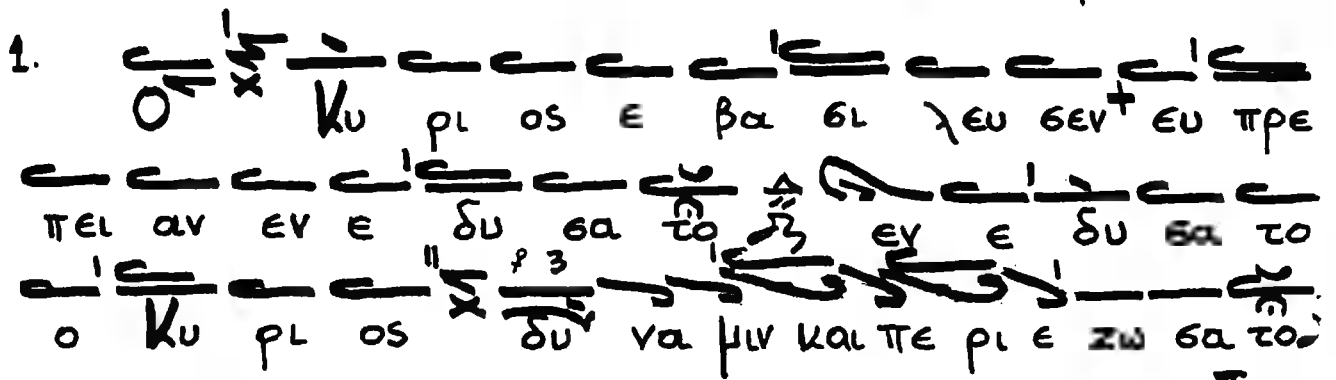 1. Ο Κυ ρι ος ε βα σι λευ σεν + ευ πρε
πει αν εν ε δυ σα το εν ε δυ σα το
ο Κυ ρι ος δυ να μιν και πε ρι ε ζω σα το.